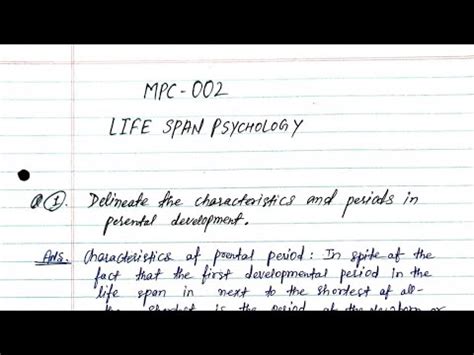 MPC-002
LIFE SPAN PSYCHOLOGY
Q①. Delineate the characteristics and periods in
perental development.
Ans. Characteristics of prental period: In spite of the
fact that the first developmental period in the
life span in next to the shortest of all-
the shortest is the period of the newborn or